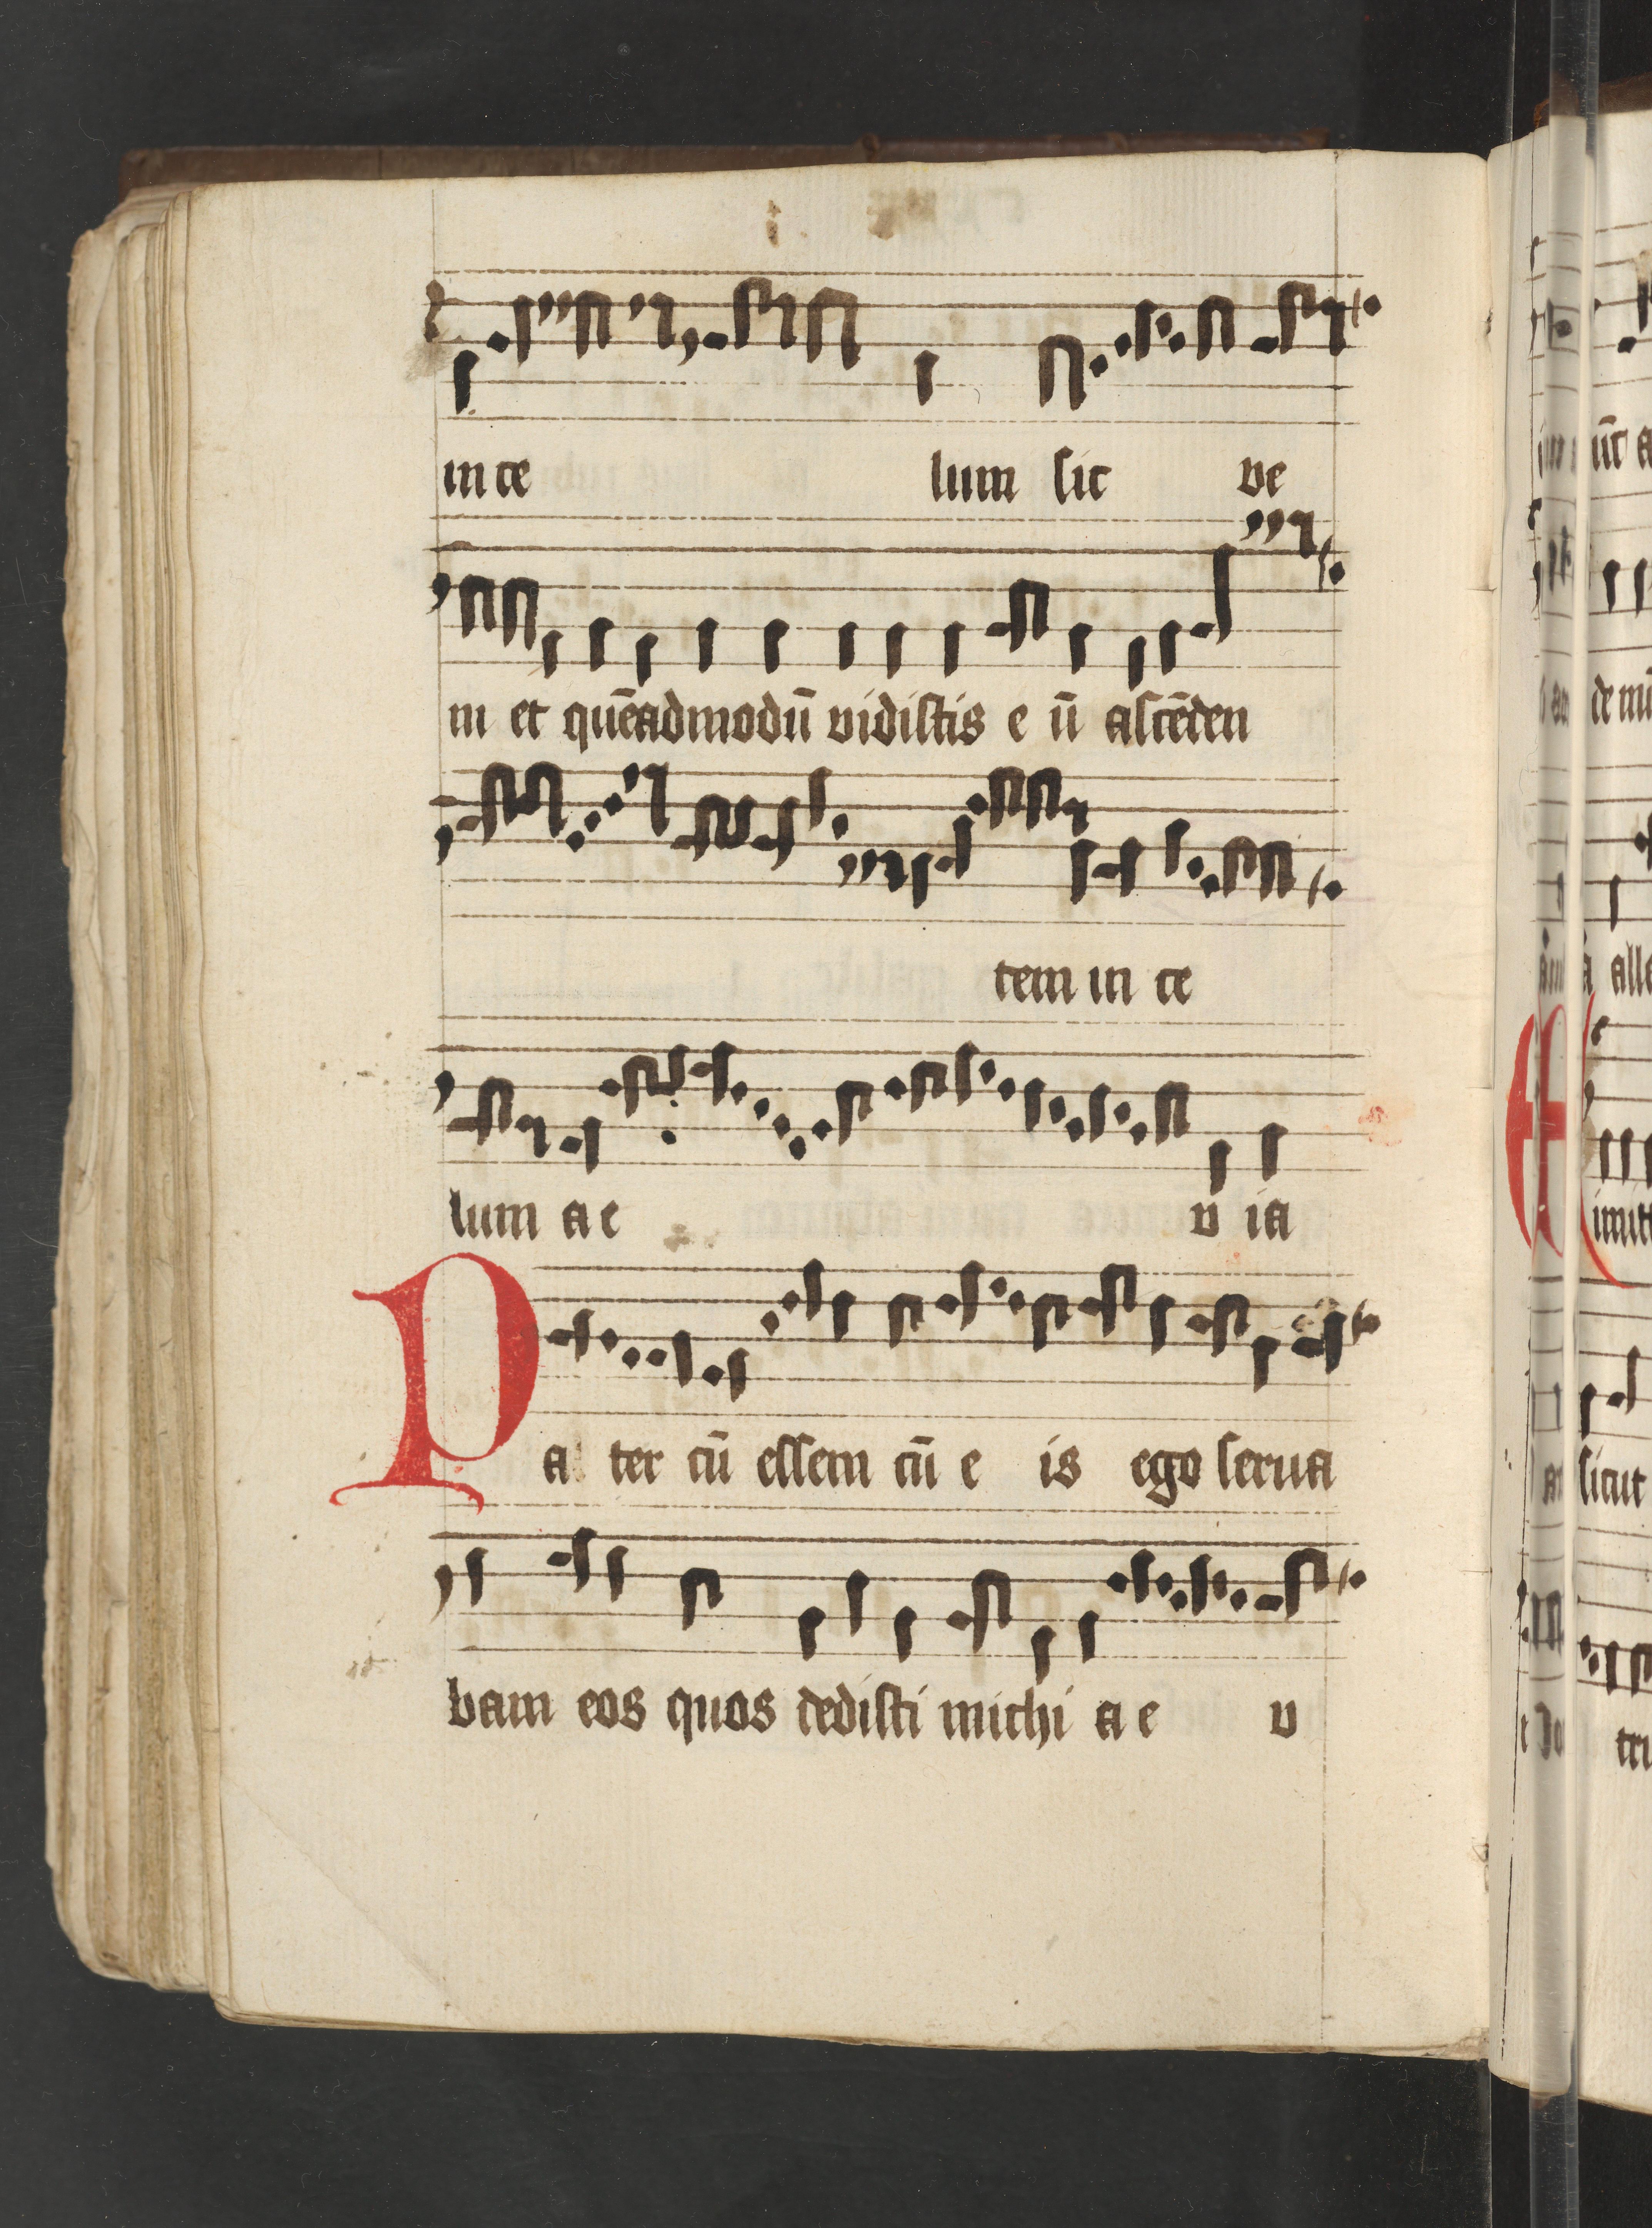 in ce lum sic ve
ni et quē admodū vidistis e ū ascēden
tem in ce
lum a e v ia
Pa ter cū essem cū e is ego serua
bam eos quos dedisti michi a e v